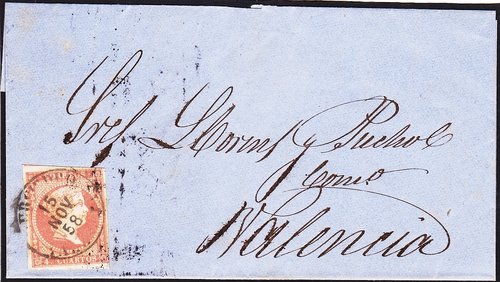 Sres Llorens y Puchol
Como
Valencia
15
NOV
58
4 CUARTOS